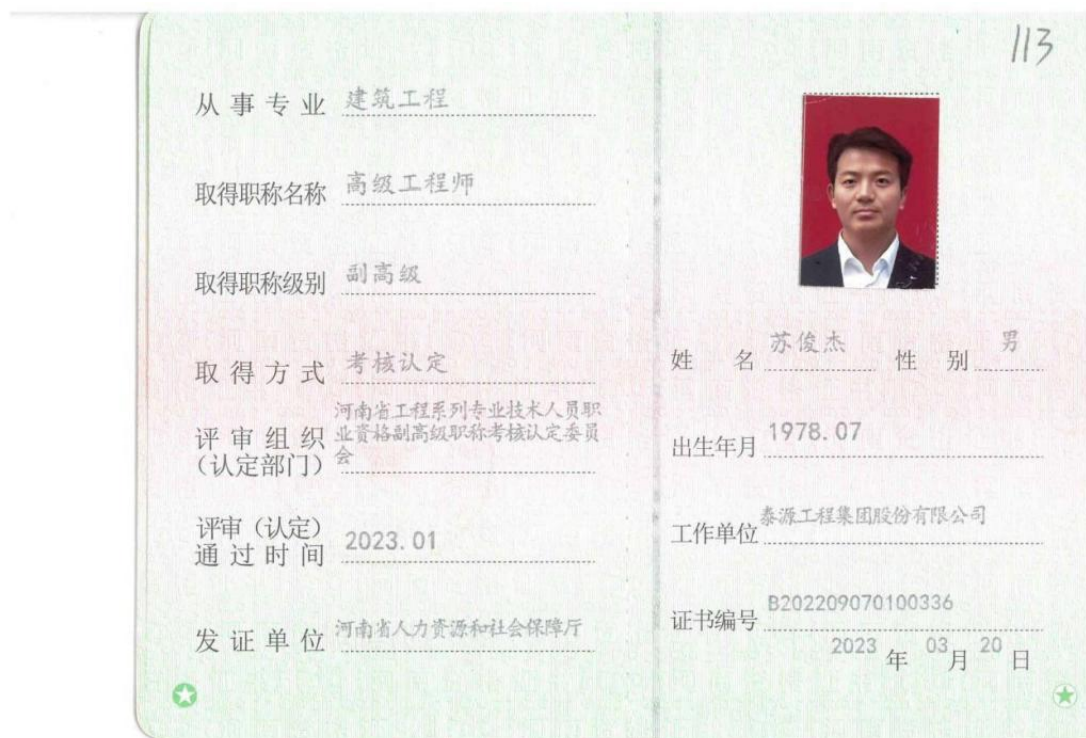 113
从事专业 建筑工程
取得职称名称 高级工程师
取得职称级别 副高级
取得方式 考核认定
评审组织
(认定部门)
河南省工程系列专业技术人员职
业资格副高级职称考核认定委员
会
评审（认定）
通过时间 2023.01
发证单位 河南省人力资源和社会保障厅
姓名 苏俊杰 性别 男
出生年月 1978.07
工作单位 泰源工程集团股份有限公司
证书编号 B202209070100336
2023 年 03 月 20 日